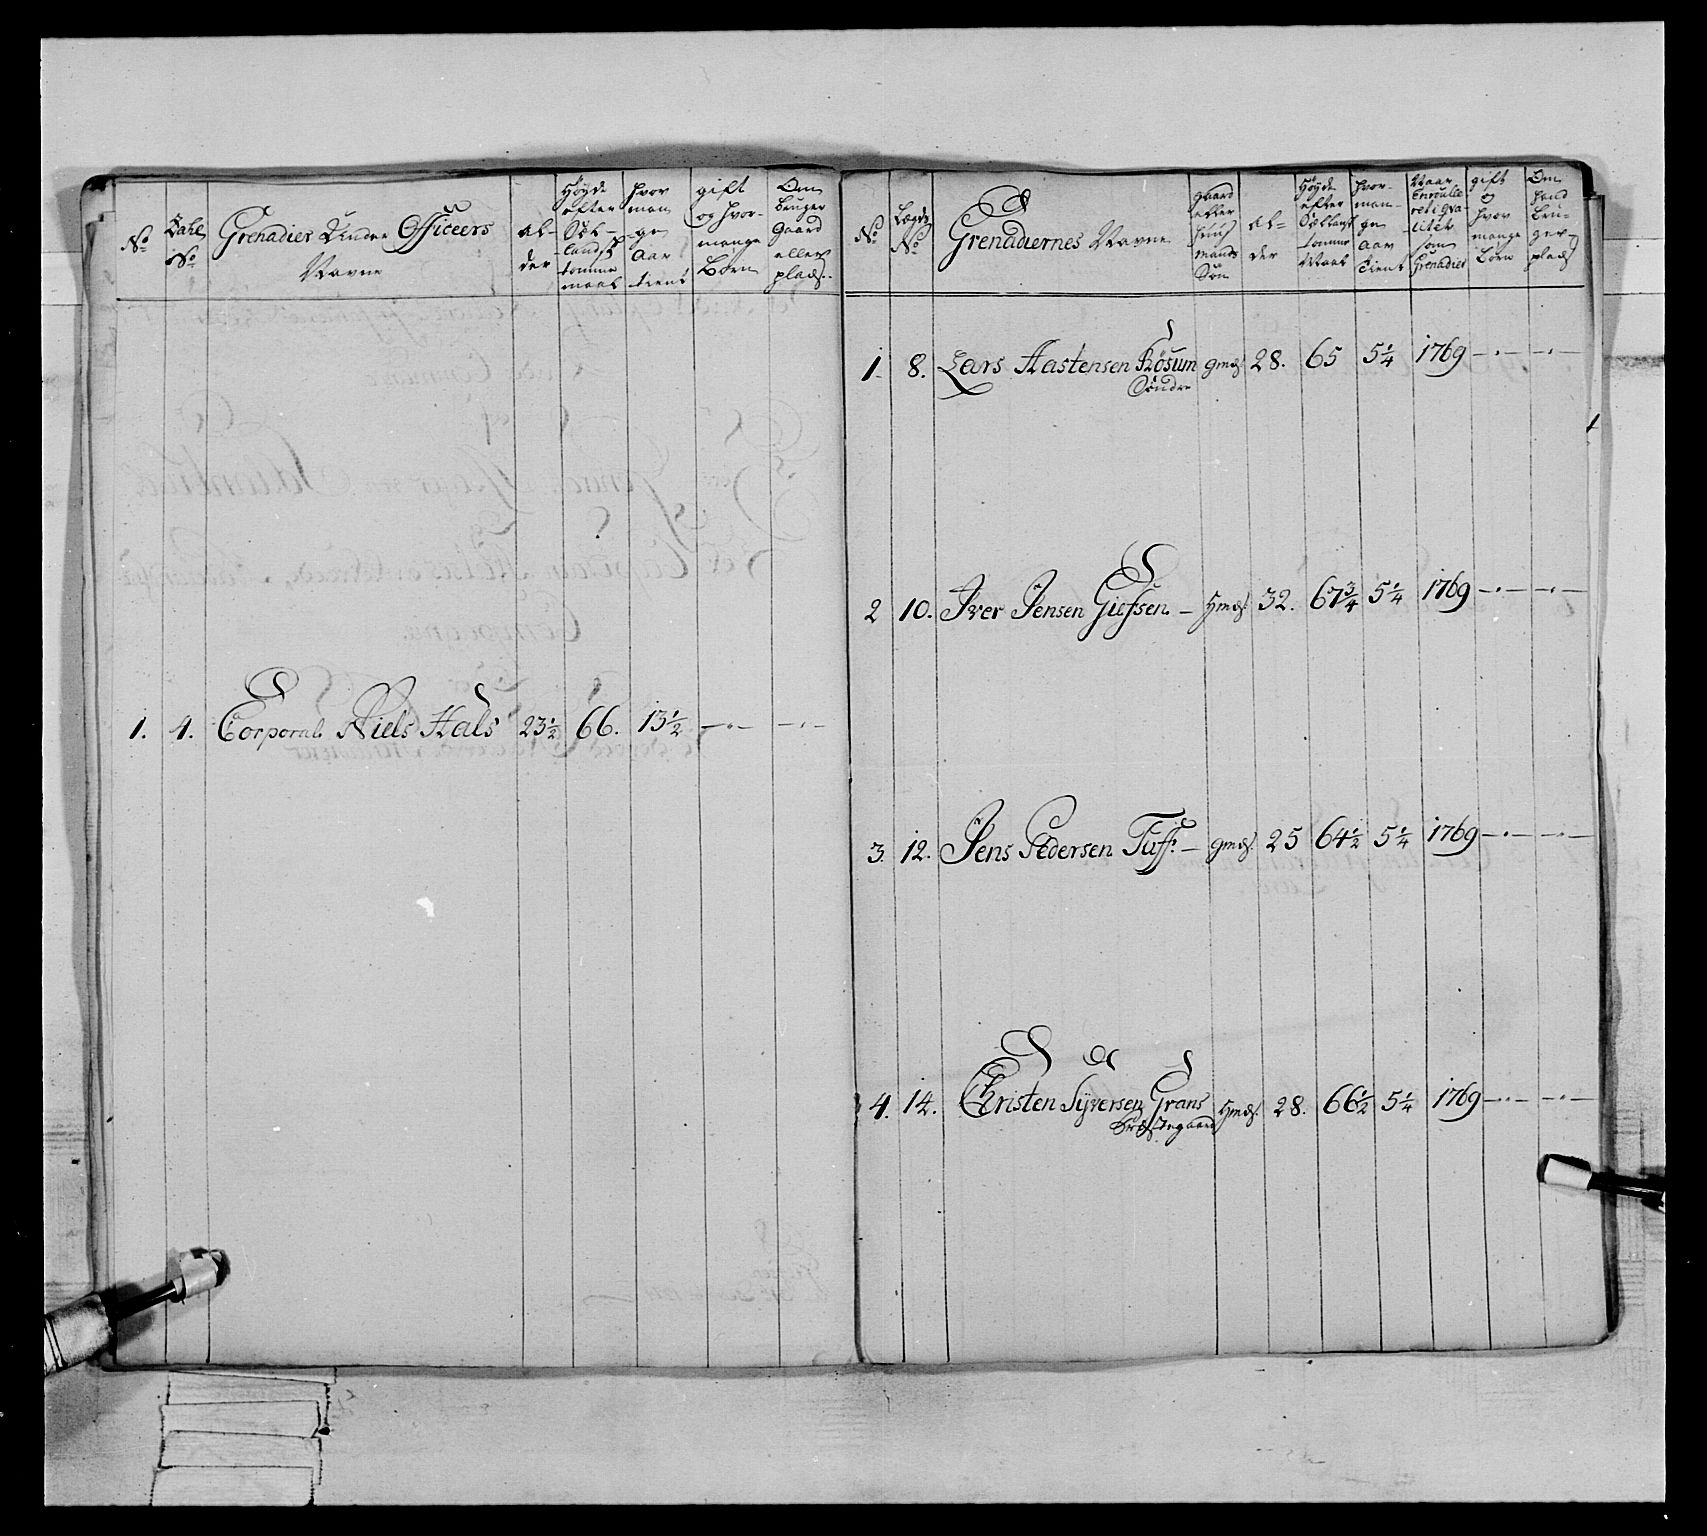 No
Tahl No
Grenadier Under Officeers Navne
Al-der
Høyde efter Siel-lands tomme maal
hvor man-ge Aar tient
gift og hvor-mange Børn
Om bruger Gaard eller plads
1. 4. Corporal Niels Hals 23½ 66. 13½ — —
No
Lægds No
Grenadiernes Navne
gaard eller huus mands Søn
al-der
Høyde efter tomme Maal
hvor-man-ge aar tient
Naar Enroulle-ret i qva-litet som Grenadier
gift og hvor mange børn
Om hand bru-ger plads
1. 8. Lars Aastensen Røsum gmds 28. 65 5¼ 1769 — —
Søndre
2 10. Iver Jensen Giefsen — Hmds 32. 67¾ 5¼ 1769 — —
3. 12. Jens Pedersen Tuff: — gmds. 25 64½ 5¼ 1769 — —
4. 14. Christen Syversen Grans Hmds. 28. 66½ 5¼ 1769 — —
Præstegaard